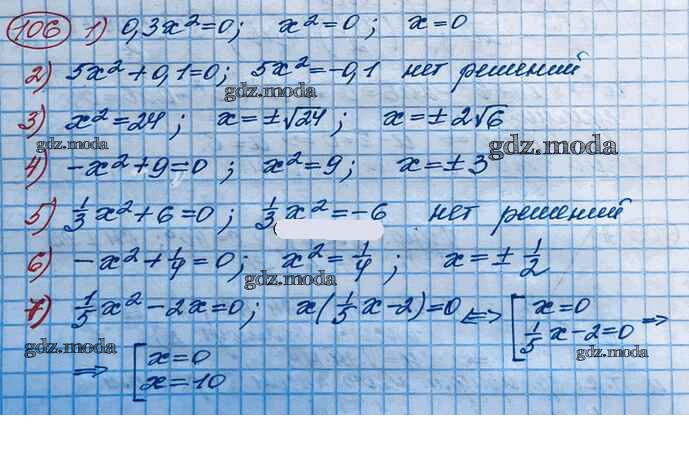 106 1) 0,3x²=0; x²=0; x=0
2) 5x²+0,1=0; 5x²=-0,1 нет решений
gdz.moda
3) x²=24; x=±√24; x=±2√6
gdz.moda gdz.moda
4) -x²+9=0; x²=9; x=±3
5) 1/3x²+6=0; 1/3x²=-6 нет решений
6) -x²+1/4=0; x²=1/4; x=±1/2
gdz.moda
7) 1/5x²-2x=0; x(1/5x-2)=0 <=> [x=0 1/5x-2=0 =>
gdz.moda gdz.moda
=> [x=0
x=10